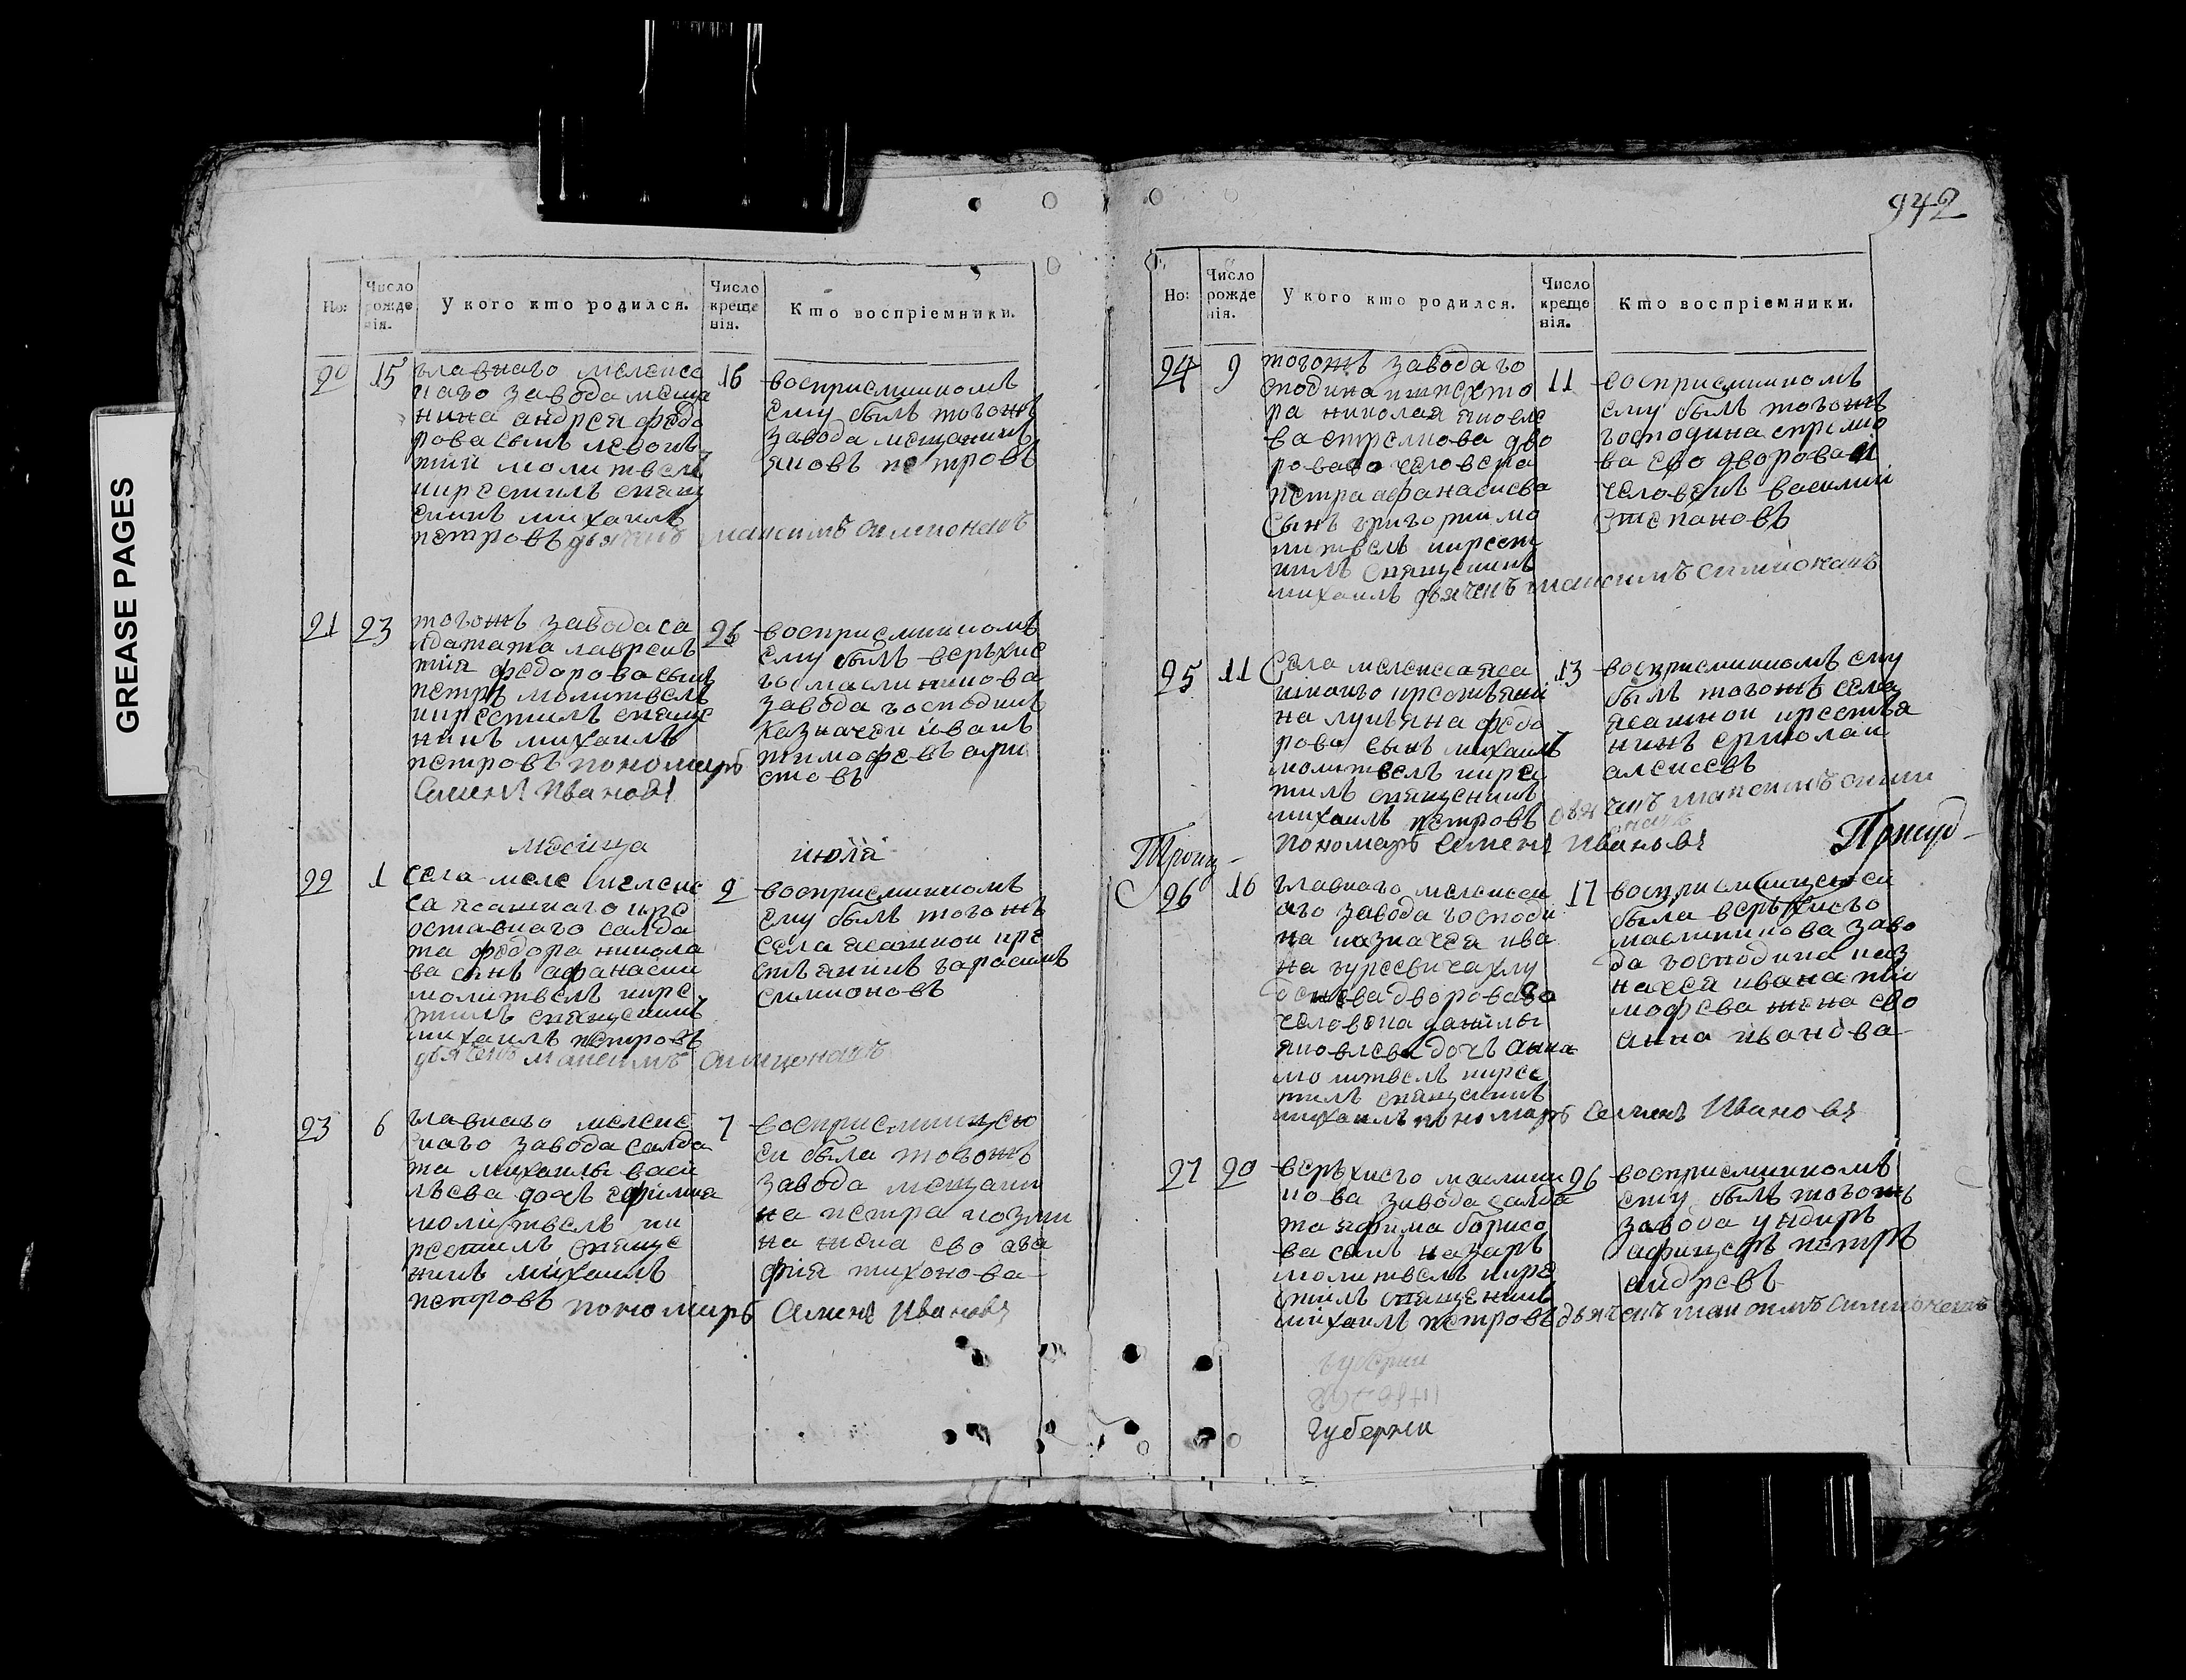 GREASE PAGES
942
Но:
Число рожде нія.
У кого кто родился.
Число креще нія.
Кто воспріемники.
20
15
главнаго мелекес
наго завода меща
нина андрея федо
рова сынъ
молитвелъ
икрестилъ свящ
еникъ михаилъ
петровъ дьячекъ максимъ симионавъ
16
восприемникомъ
ему былъ тогожъ
завода мещанинъ
яковъ петровъ
21
23
тогожъ завода са
лдатата лаврень
тия федорова сынъ
петръ молитвелъ
икрестилъ свяще
никъ михаилъ
петровъ пономарь
Семенъ Ивановъ
26
восприемникомъ
ему былъ верхне
го маслиникова
завода господинъ
казначеи иванъ
тимофевъ ари
стовъ
мѣсяца
июля
22
1
села меле
са ясашнаго кре
оставнаго салда
та федора никола
ва сынъ афанасии
молитвелъ икре
стилъ священикъ
михаилъ петровъ
дьячекъ максимъ симионавъ
2
восприемникомъ
ему былъ тогожъ
села ясашнои кре
стьянинъ гарасимъ
симионовъ
23
6
главнаго мелеке
снаго завода салда
та михаилы васи
льева дочь ефимиа
молитвелъ ик
рестилъ свяще
никъ михаилъ
петровъ пономарь Семенъ Ивановъ
7
восприемницею
еи была тогожъ
завода мещани
на петра козми
на жена его ага
фия тихонова
Но:
Число рожде нія.
У кого кто родился.
Число креще нія.
Кто воспріемники.
24
9
тогожъ завода го
сподина инпехто
ра николая яковле
ва стрелкова дво
роваго человека
петра афанасиева
сынъ григории мо
литвелъ икрест
илъ священикъ
михаилъ дьячекъ максимъ симионавъ
11
восприемникомъ
ему былъ тогожъ
господина стрелко
ва его дворовай
человекъ василии
степановъ
25
11
Села мелекеса яса
шнаго крестьяни
на лукьяна федо
рова сынъ михаилъ
молитвелъ икрес
тилъ священикъ
михаилъ петровъ дьячекъ максимъ сими
онавъ
пономарь Семенъ Ивановъ
13
восприемникомъ ему
былъ тогожъ села
ясашнои крестья
нинъ ермолаи
алексеевъ
Троиц-
Присуд-
26
16
главнаго мелекесн
аго завода господи
на казначея ива
на
дворовага
человека данилы
яковлева дочъ анна
молитвелъ икрес
тилъ священикъ
михаилъ пономарь Семенъ Ивановъ
17
восприемницею еи
была верхнего
маслиникова заво
да господина каз
начея ивана ти
мофева жена его
анна иванова
27
20
верхнего маслини
кова завода салда
та ефима борисо
ва сынъ назаръ
молитвелъ икре
стилъ священикъ
михаилъ петровъ дьячекъ максимъ симионавъ
26
восприемникомъ
ему былъ тогожъ
завода ундиръ
афицеръ петръ
андревъ
губернии
Губернии